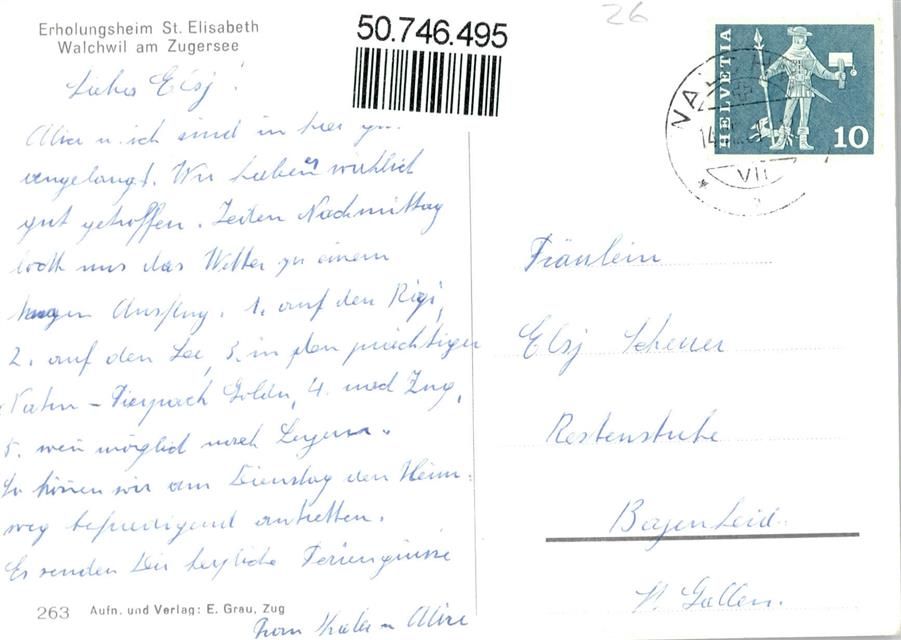 Erholungsheim St. Elisabeth
Walchwil am Zugersee
50.746.495
26
HELVETIA
10
VII
Liebes Elsj!
Alice u. ich sind in hier gut
angelangt. Wir haben wirklich
gut getroffen. Jeden Nachmittag
lockt uns das Wetter zu einem
Ausflug. 1. auf den Rigi,
2. auf den See, 3. in den prächtigen
Natur - Tierpark Goldau, 4. nach Zug,
5. wenn möglich nach Luzern.
So können wir am Dienstag den Heim-
weg befriedigend antreten.
Es senden Dir herzliche Feriengrüsse
263 Aufn. und Verlag: E. Grau, Zug
Alice
Fräulein
Elsj Scheuer
Restenstube
St. Gallen.